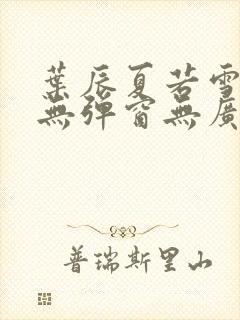 葉辰夏若雪
無彈窗無廣
普瑞斯里山